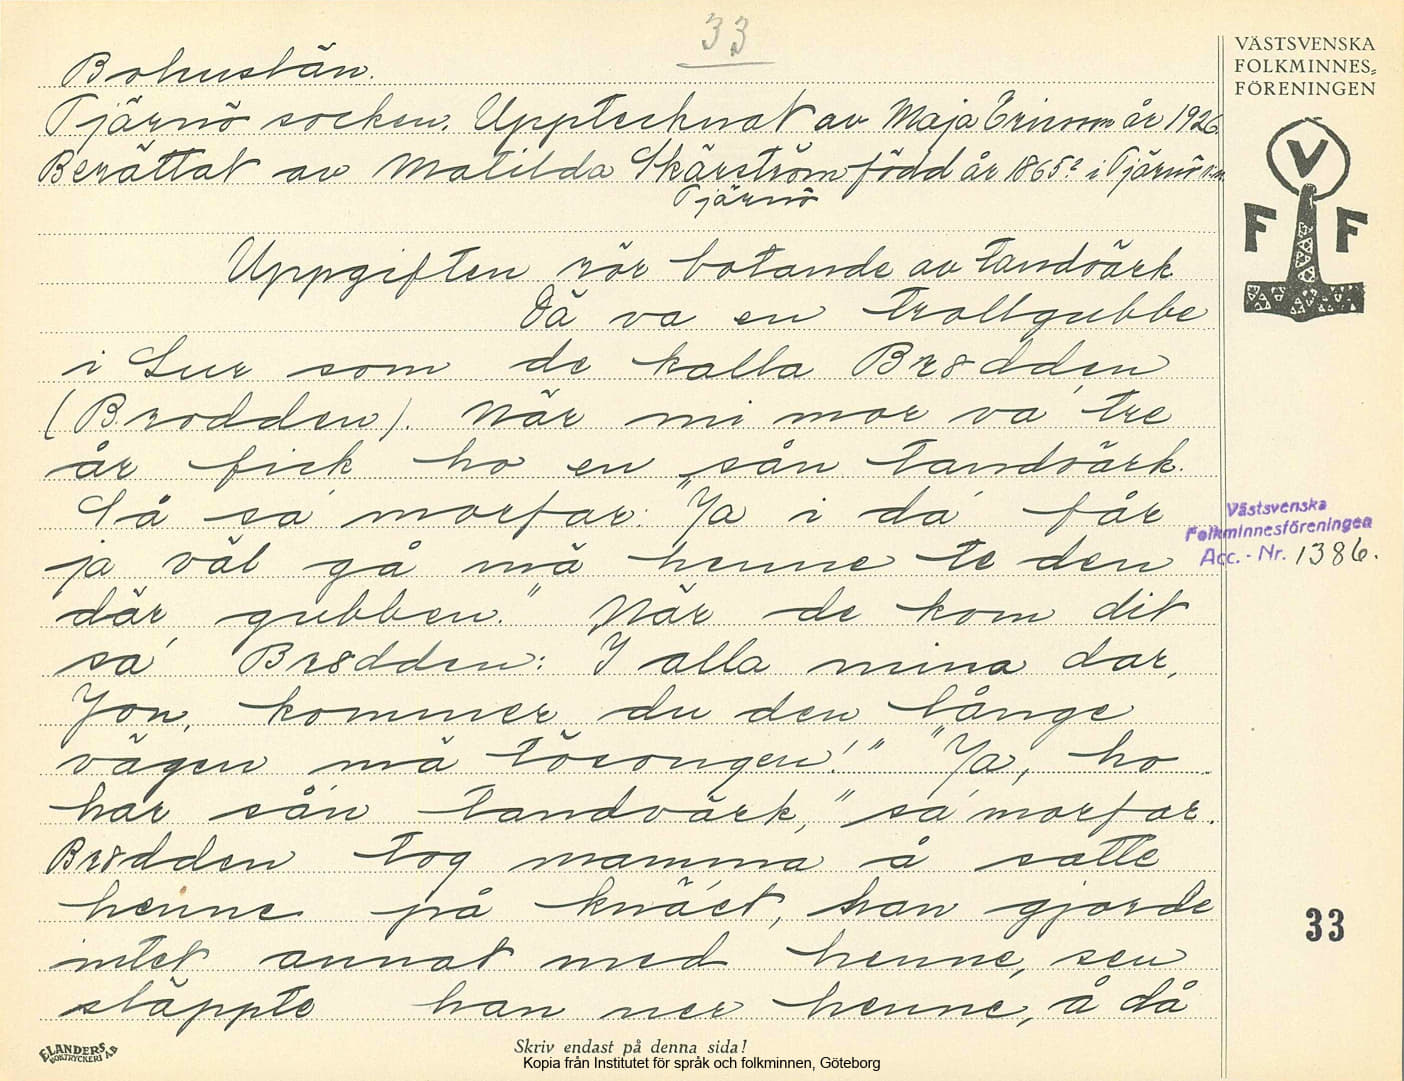 33
VÄSTSVENSKA
FOLKMINNES-
FÖRENINGEN
V
F F
Bohuslän.
Tjärnö socken. Upptecknat av Maja Ericson år 1926
Berättat av Matilda Skärström född år 1865? i Tjärnö sn.
Tjärnö
Uppgiften rör botande av tandvärk
Dä va en trollgubbe
i Lur som de kalla Br8dden
(Brodden). När mi mor va' tre
år fick ho en sån tandvärk.
Så sa' morfar: "Ja i da' får
ja väl gå mä henne te den
där gubben." När de kom dit
sa' Br8dden: I alla mina dar,
Jon, kommer du den långe
vägen mä tösongen!" "Ja, ho
har sån tandvärk," sa' morfar.
Br8dden tog mamma å satte
henne på knäet, han gjorde
intet annat med henne, sen
släppte han ner henne, å då
Västsvenska
Folkminnesföreningen
Acc. - Nr. 1386.
33
ELANDERS
BOKTRYCKERI AB
Skriv endast på denna sida!
Kopia från Institutet för språk och folkminnen, Göteborg